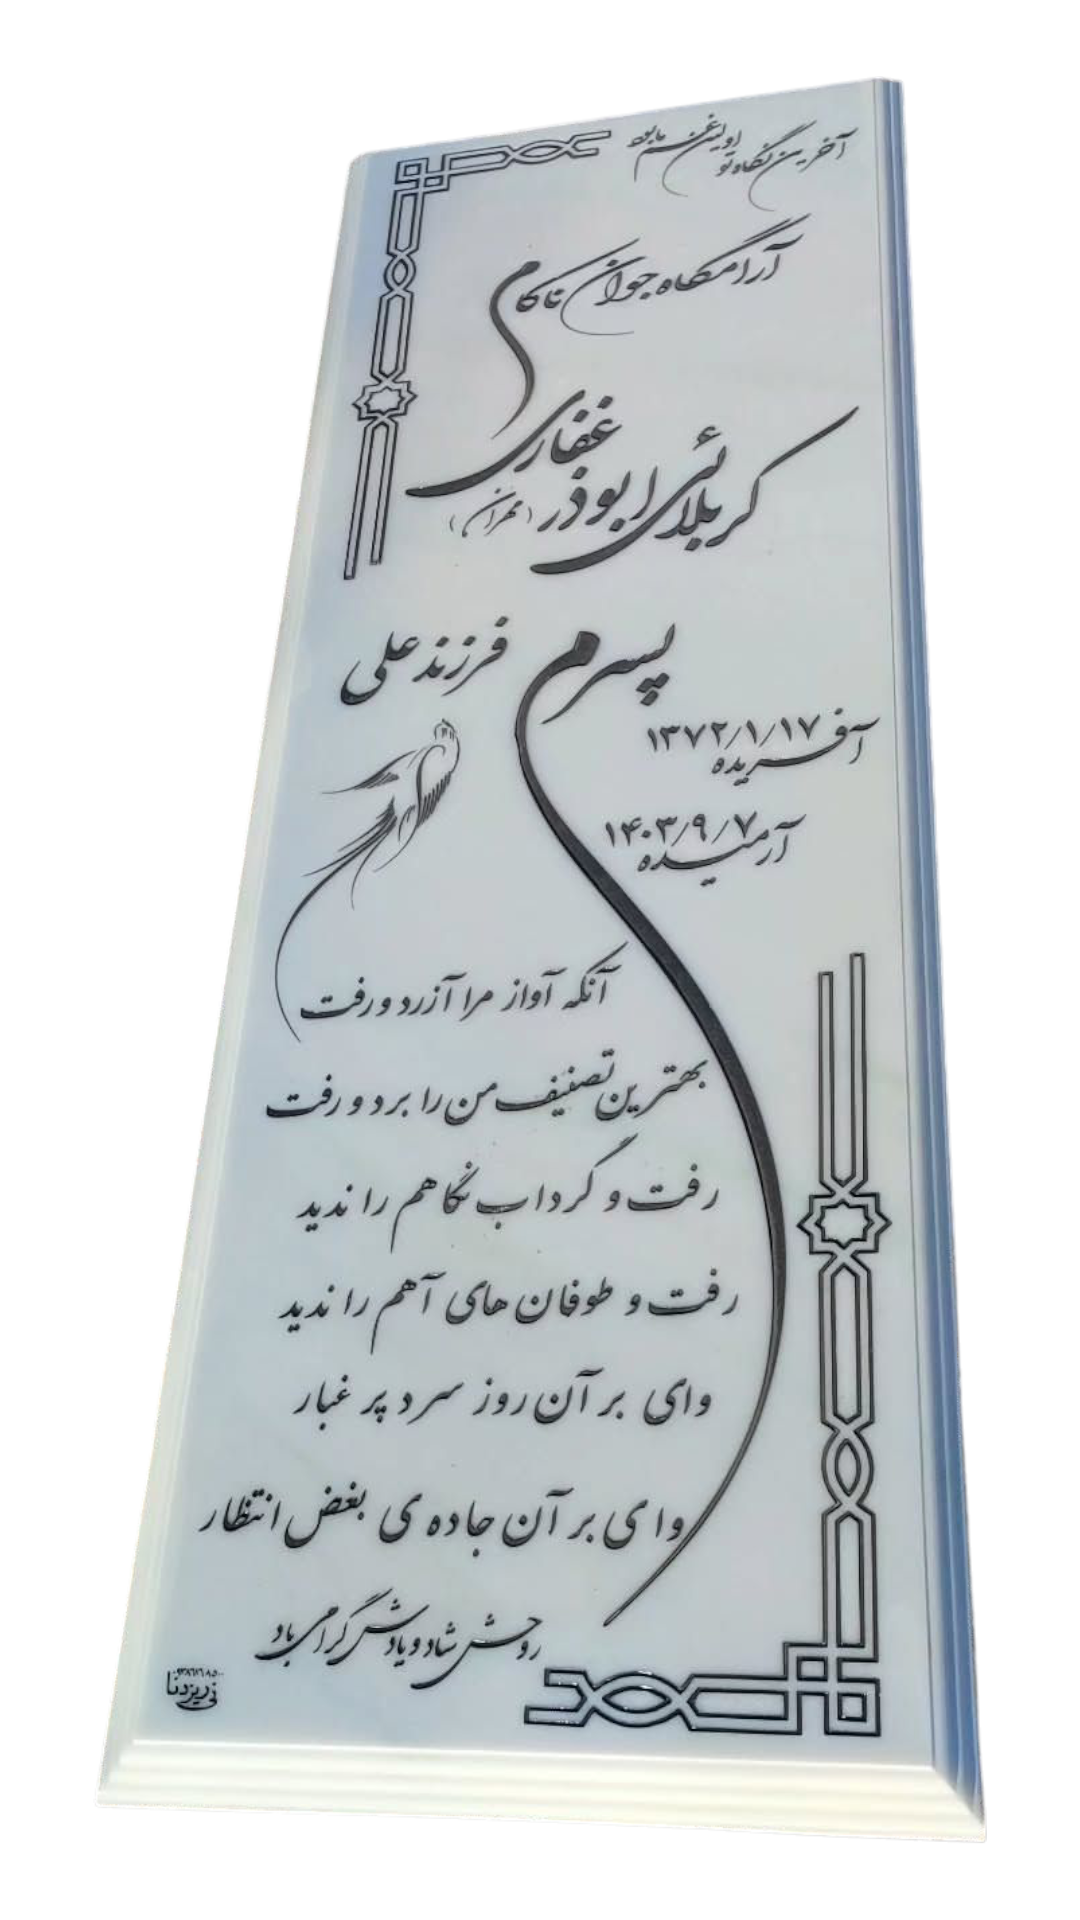 آخرین نگاه تو اولین غم ما بود
آرامگاه جوان ناکام
کربلائی ابوذر غفاری
(مهران)
پسرم
فرزند علی
آفریده ۱۳۷۲/۱/۱۷
آرمیده ۱۴۰۳/۹/۷
آنکه آواز مرا آزرد و رفت
بهترین تصنیف من را برد و رفت
رفت و گرداب نگاهم را ندید
رفت و طوفان های آهم را ندید
وای بر آن روز سرد پر غبار
وای بر آن جاده ی بغض انتظار
روحش شاد و یادش گرامی باد